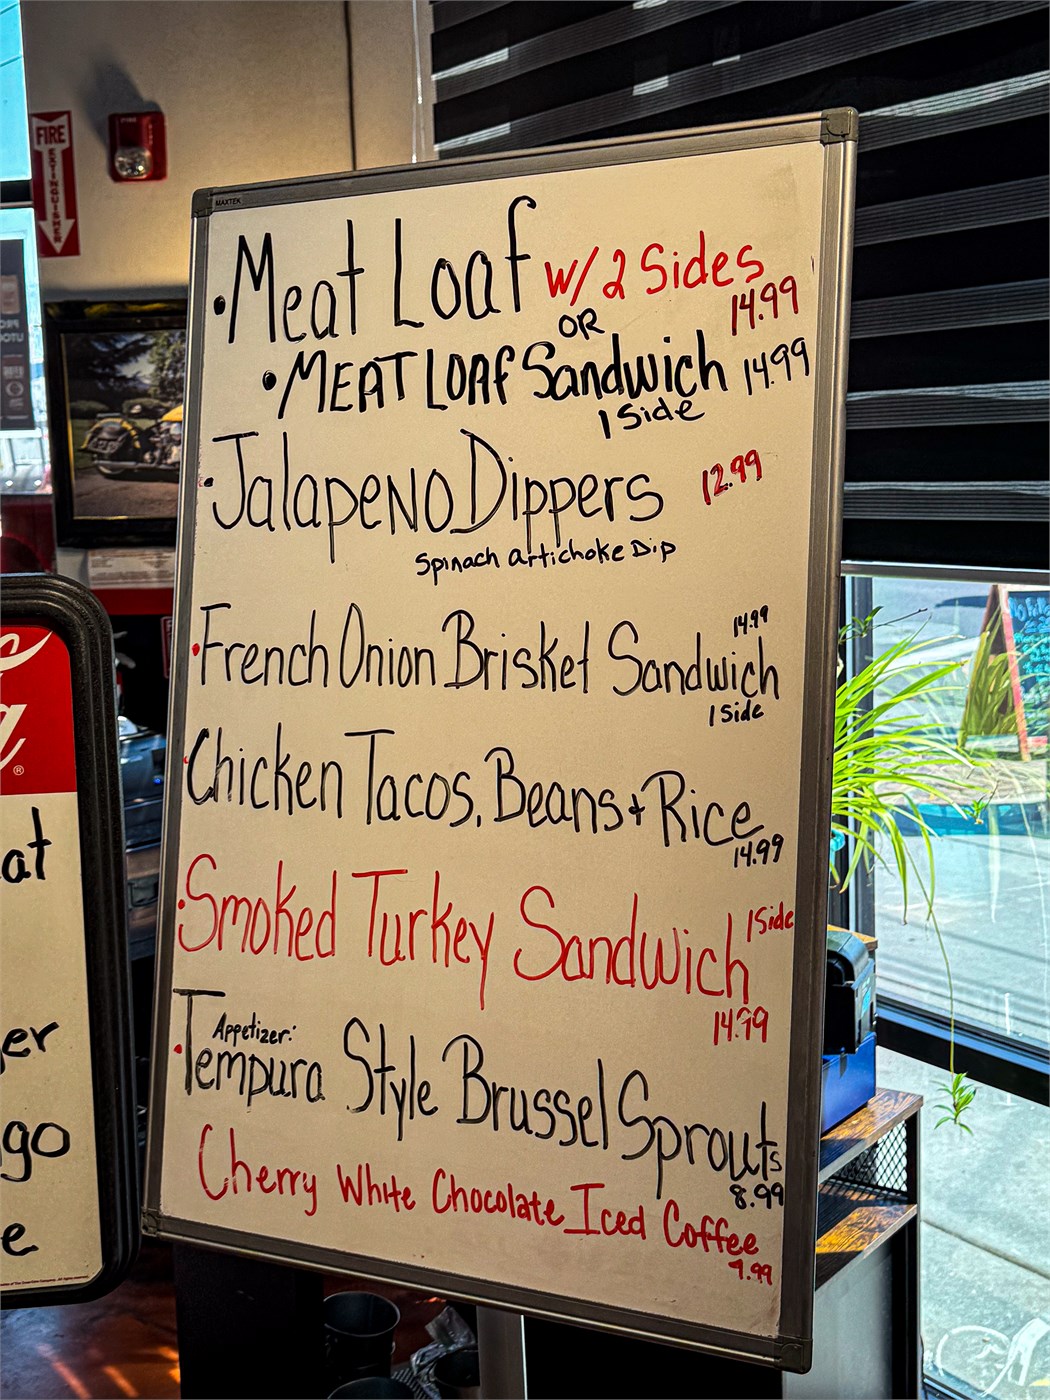 FIRE
EXTINGUISHER
FIRE
MAXTEK
• Meat Loaf w/ 2 Sides
14.99
OR
• MEAT LOAF Sandwich 14.99
1 Side
• Jalapeno Dippers 12.99
Spinach artichoke Dip
14.99
• French Onion Brisket Sandwich
1 Side
• Chicken Tacos, Beans + Rice
14.99
• Smoked Turkey Sandwich 1 Side
14.99
Appetizer:
• Tempura Style Brussel Sprouts
8.99
Cherry White Chocolate Iced Coffee
®
at
er
go
e